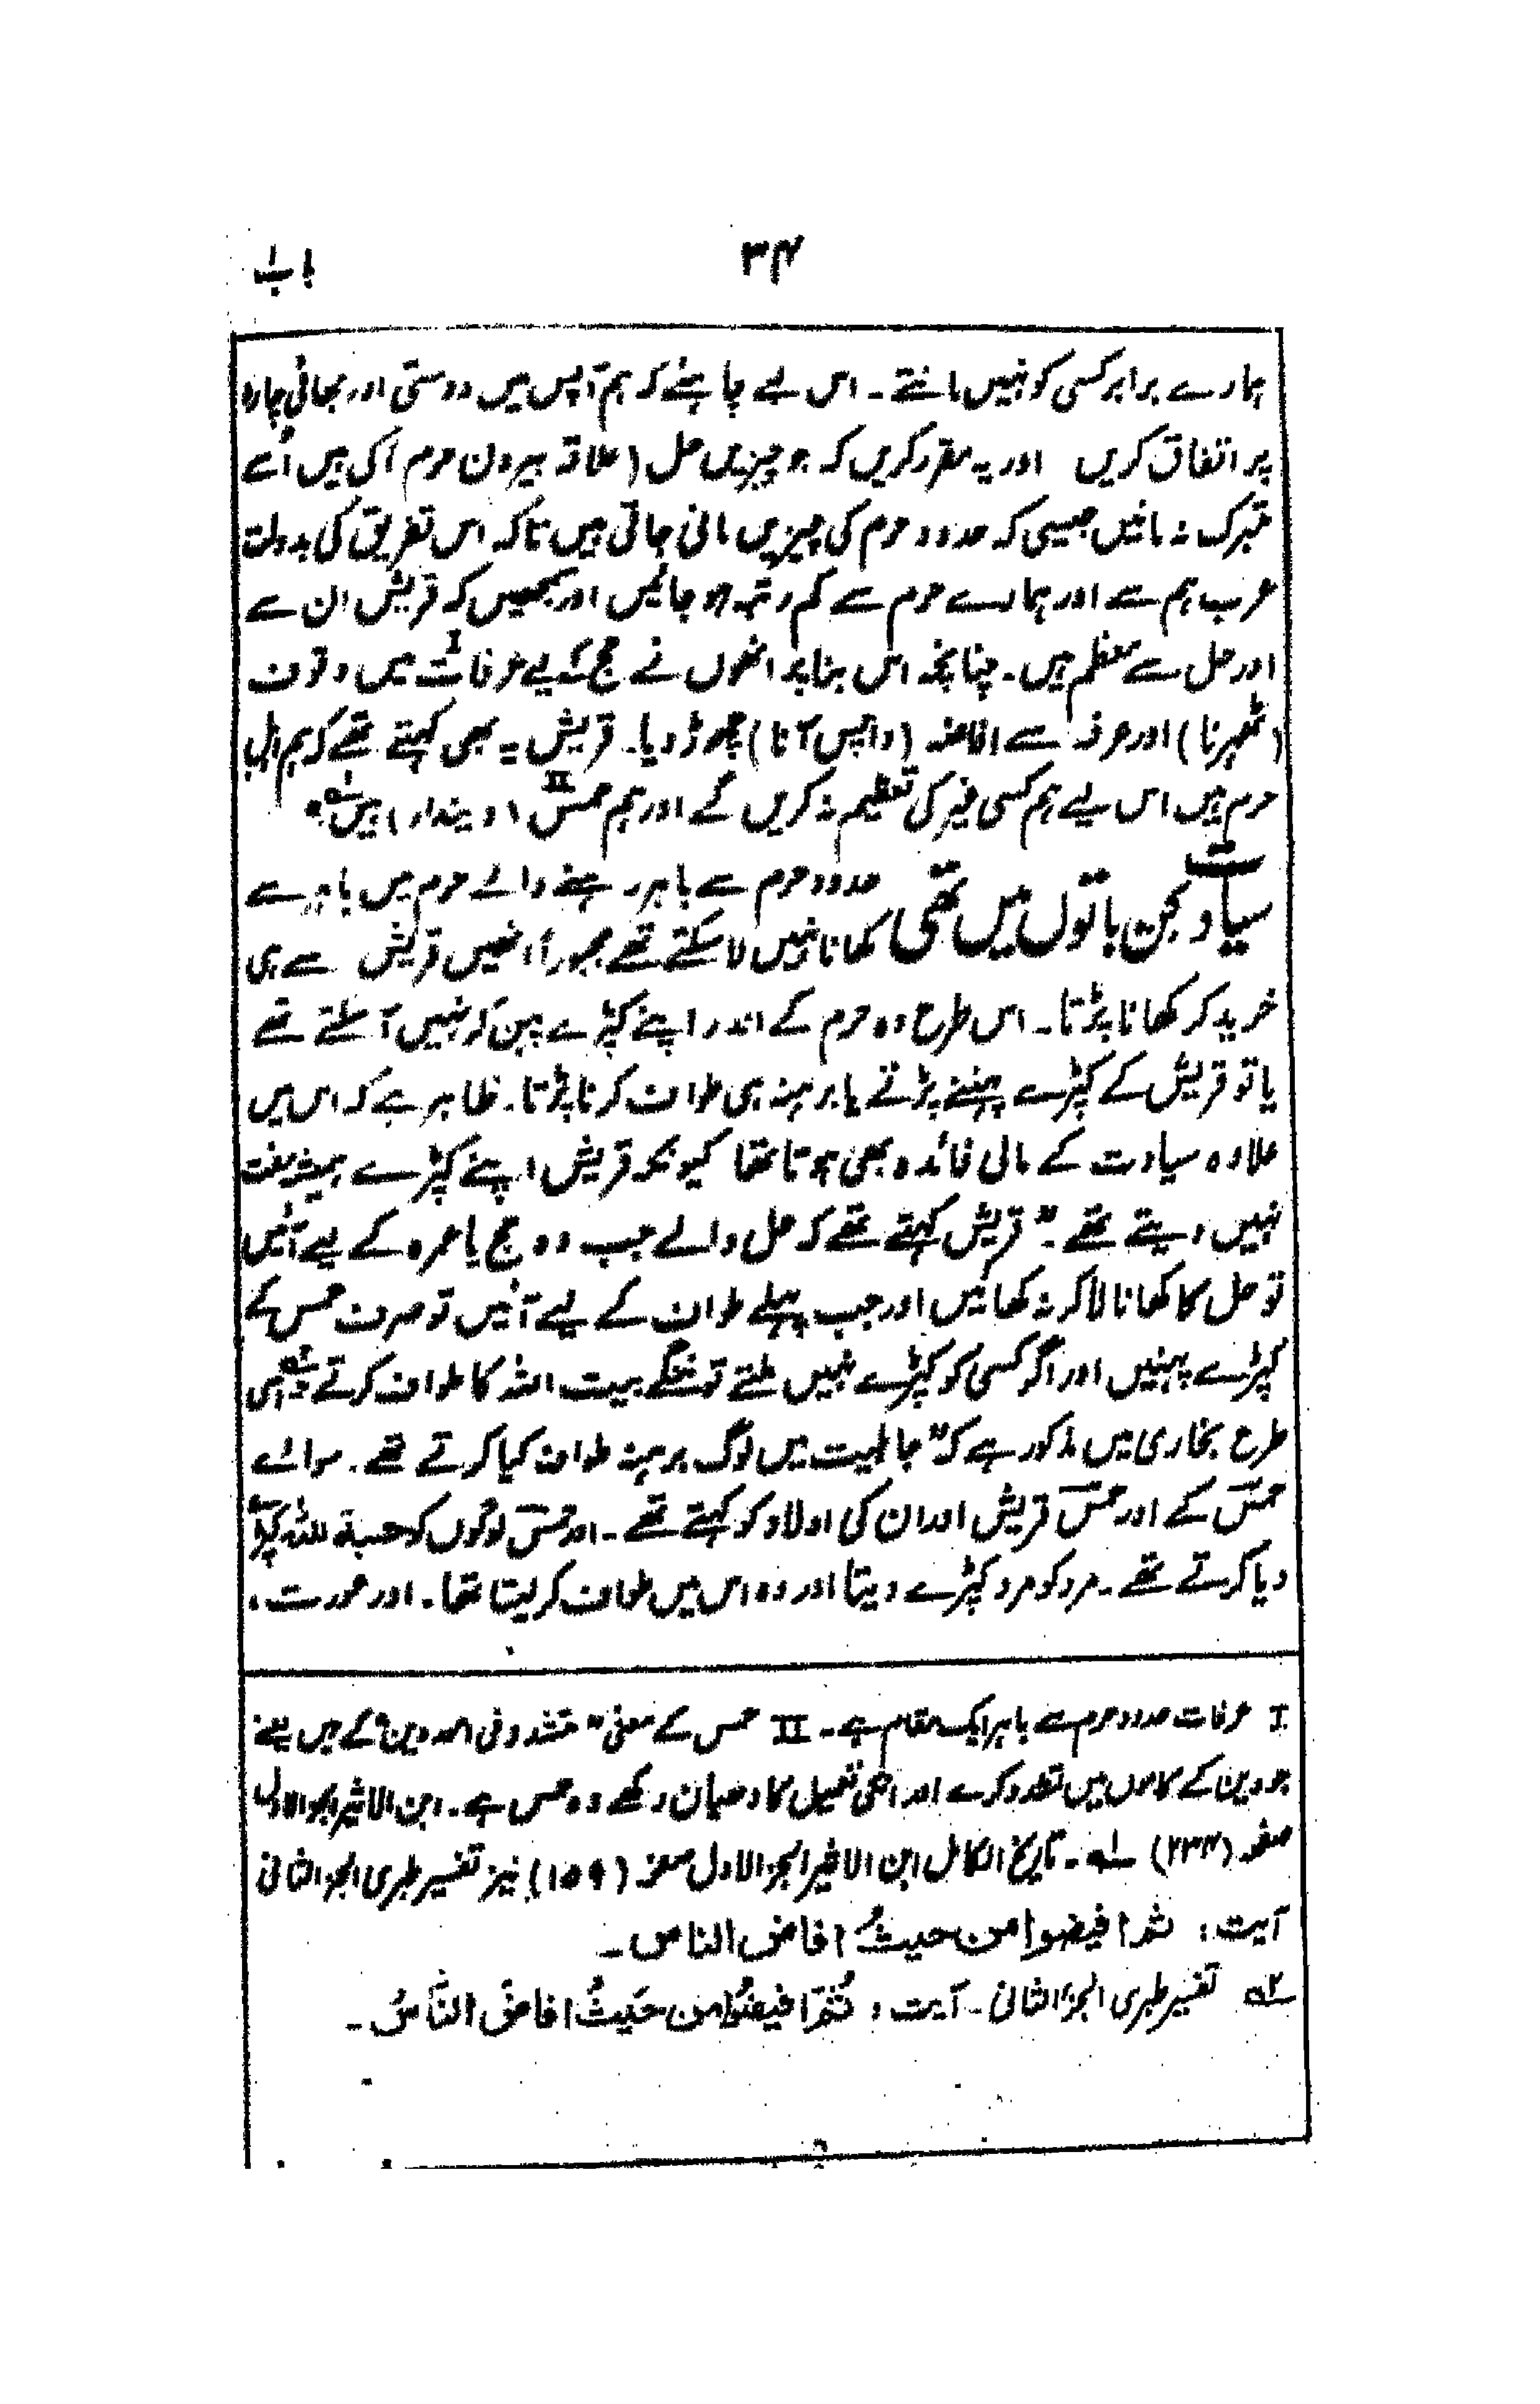 ۳۴
باب
ہمارے برابر کسی کو نہیں مانتے۔ اس لیے چاہئے کہ ہم آپس میں دوستی اور بھائی چارہ
پر اتفاق کریں اور یہ مقرر کریں کہ جو چیزیں حل (علاقہ بیرون حرم) کی ہیں اُسے
متبرک نہ مانیں جیسی کہ حدود حرم کی چیزیں مانی جاتی ہیں تاکہ اس تفریق کی بدولت
عرب ہم سے اور ہمارے حرم سے کم رتبہ ہو جائیں اور سمجھیں کہ قریش ان سے
اور حل سے معظم ہیں۔ چنانچہ اس بنا پر انھوں نے حج کے لیے عرفات I میں وقوف
(ٹھیرنا) اور عرفہ سے افاضہ (واپس آنا) چھوڑ دیا۔ قریش یہ بھی کہتے تھے کہ ہم اہل
حرم ہیں اس لیے ہم کسی غیر کی تعظیم نہ کریں گے اور ہم حمس II (دیندار) ہیں۔ ۱؎
سیادت کن باتوں میں تھی حدود حرم سے باہر رہنے والے حرم میں باہر سے
کھانا نہیں لا سکتے تھے مجبوراً انھیں قریش سے ہی
خرید کر کھانا پڑتا۔ اس طرح وہ حرم کے اندر اپنے کپڑے پہن کر نہیں آ سکتے تھے
یا تو قریش کے کپڑے پہننے پڑتے یا برہنہ ہی طواف کرنا پڑتا۔ ظاہر ہے کہ اس میں
علاوہ سیادت کے مالی فائدہ بھی ہوتا تھا کیونکہ قریش اپنے کپڑے ہمیشہ مفت
نہیں دیتے تھے۔ "قریش کہتے تھے کہ حل والے جب وہ حج یا عمرہ کے لیے آئیں
تو حل کا کھانا لا کر نہ کھائیں اور جب پہلے طواف کے لیے آئیں تو صرف حمس کے
کپڑے پہنیں اور اگر کسی کو کپڑے نہیں ملتے تو ننگے بیت اللہ کا طواف کرتے ۲؎ اسی
طرح بخاری میں مذکور ہے کہ "جاہلیت میں لوگ برہنہ طواف کیا کرتے تھے۔ سوائے
حمس کے اور حمس قریش اور ان کی اولاد کو کہتے تھے۔ اور حمس لوگوں کو حسبۃ للہ کپڑے
دیا کرتے تھے۔ مرد کو مرد کپڑے دیتا اور وہ اس میں طواف کر لیتا تھا۔ اور عورت،
I عرفات حدود حرم سے باہر ایک مقام ہے۔ II حمس کے معنی "متشدد فی الدین" کے ہیں یعنے
جو دین کے کاموں میں تشدد کرے اور اسکی تعمیل کا دھیان رکھے وہ حمس ہے۔ ابن الاثیر الجزء الاول
صفحہ (۲۳۴) ۱؎۔ تاریخ الکامل ابن الاثیر الجزء الاول صفحہ (۱۵۹) نیز تفسیر طبری الجزء الثانی
آیت: ثم افیضوا من حیثُ افاض الناس۔
۲؎ تفسیر طبری الجزء الثانی۔ آیت: ثُمَّ افیضُوا من حَیثُ افاضَ النَّاسُ۔